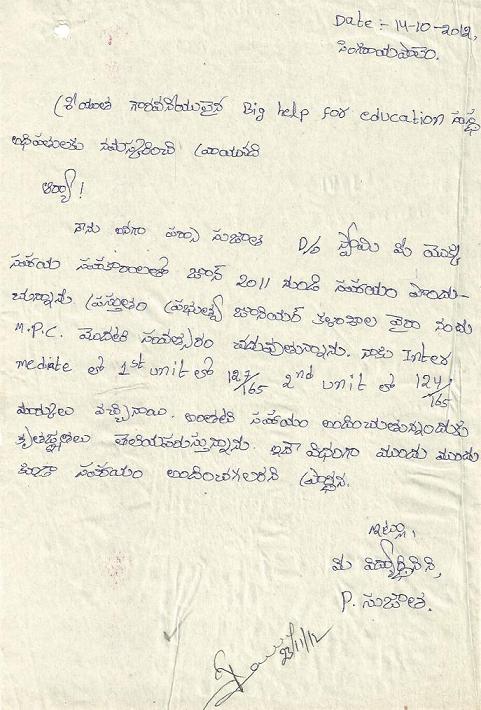 Date :- 14-10-2012,
సింగరాయపాలెం.
శ్రీయుత గౌరవనీయులైన Big help for education సంస్థ
అధిపతులకు నమస్కరించి వ్రాయునది
ఆర్యా!
నేను అనగా పర్సా సుజాత D/o స్వామి మీ యొక్క
సహాయ సహకారాలతో జూన్ 2011 నుండి సహాయం పొందు-
చున్నాను ప్రస్తుతం ప్రభుత్వ జూనియర్ కళాశాల వైరా నందు
M.P.C. మొదటి సంవత్సరం చదువుతున్నాను. నాకు Inter
mediate లో 1st unit లో 127/165 2nd unit లో 124/165
మార్కులు వచ్చినాయి. ఇంతటి సహాయం అందించుతున్నందుకు
కృతజ్ఞతలు తెలియపరుస్తున్నాను. ఇదే విధంగా ముందు ముందు
కూడా సహాయం అందించగలరని ప్రార్థన.
ఇట్లు,
మీ విద్యార్థినిని,
P. సుజాత.
23/11/12